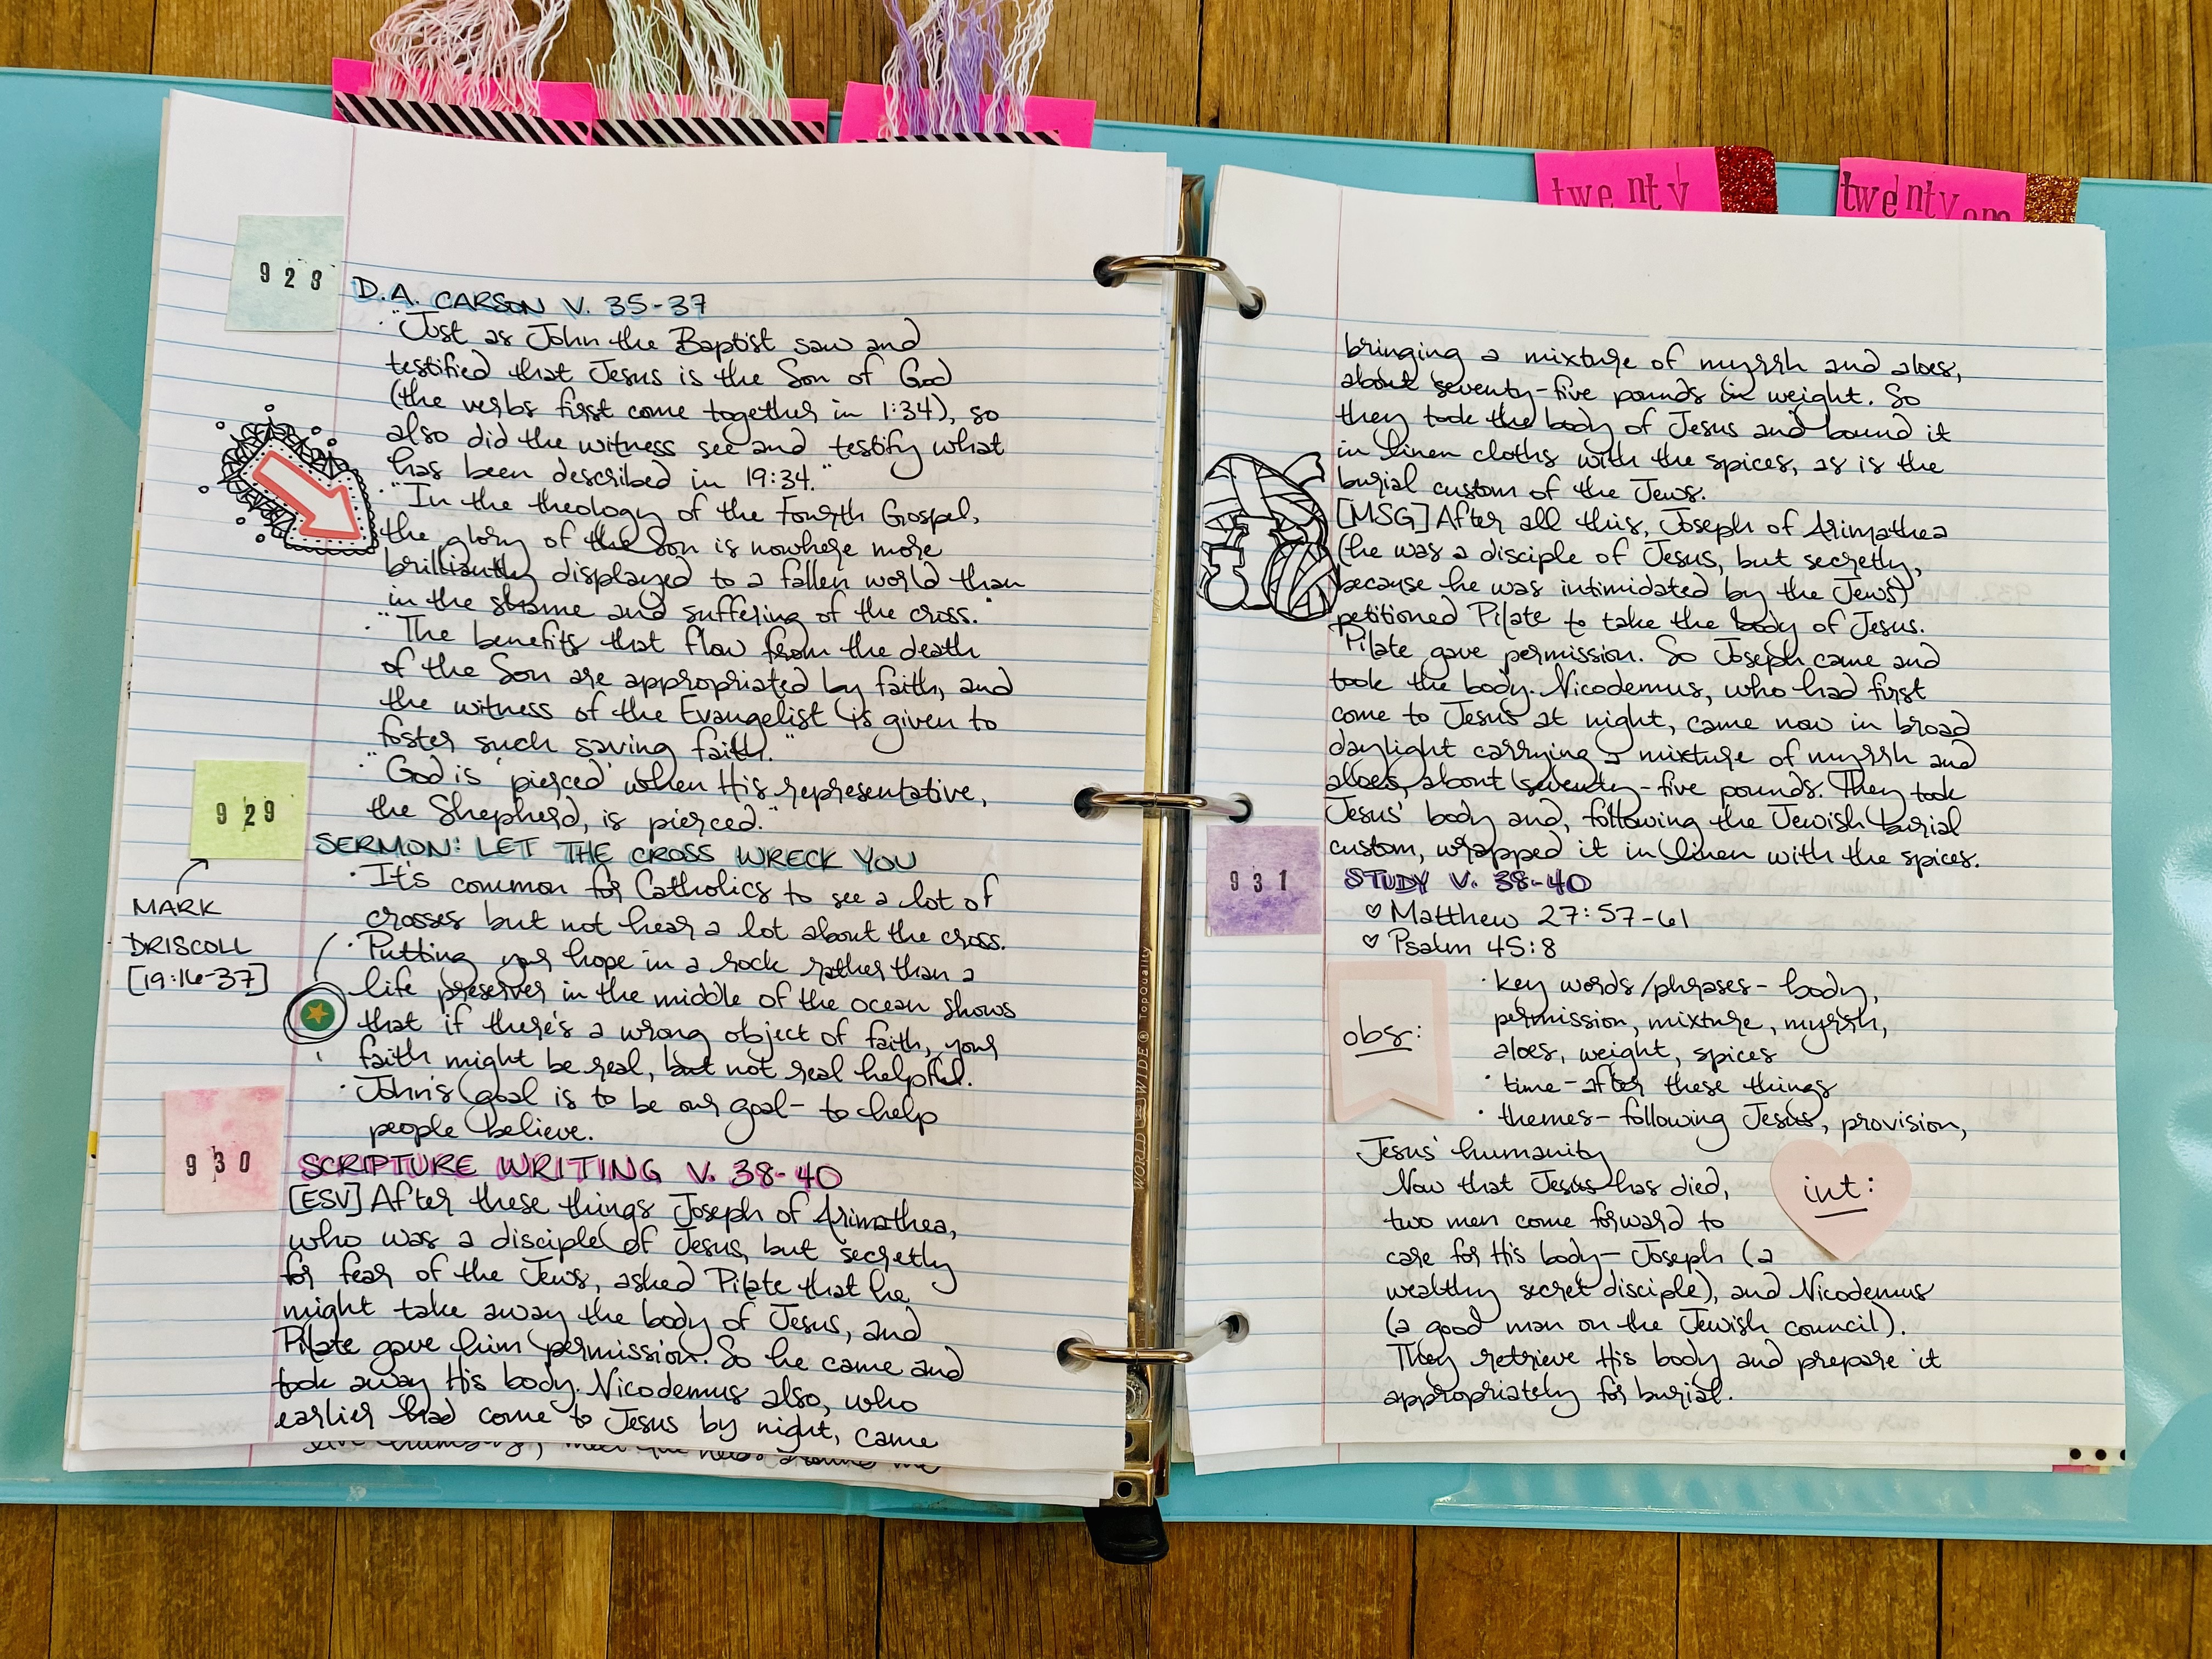 twenty
twenty one
928
D.A. CARSON V. 35-37
· "Just as John the Baptist saw and
testified that Jesus is the Son of God
(the verbs first come together in 1:34), so
also did the witness see and testify what
has been described in 19:34."
· "In the theology of the Fourth Gospel,
the glory of the Son is nowhere more
brilliantly displayed to a fallen world than
in the shame and suffering of the cross."
· "The benefits that flow from the death
of the Son are appropriated by faith, and
the witness of the Evangelist is given to
foster such saving faith."
· "God is 'pierced' when His representative,
the Shepherd, is pierced."
929
SERMON: LET THE CROSS WRECK YOU
MARK
DRISCOLL
[19:16-37]
· It's common for Catholics to see a lot of
crosses but not hear a lot about the cross.
· Putting your hope in a rock rather than a
life preserver in the middle of the ocean shows
that if there's a wrong object of faith, your
faith might be real, but not real helpful.
· John's goal is to be our goal- to help
people believe.
930
SCRIPTURE WRITING V. 38-40
[ESV] After these things Joseph of Arimathea,
who was a disciple of Jesus, but secretly
for fear of the Jews, asked Pilate that he
might take away the body of Jesus, and
Pilate gave him permission. So he came and
took away His body. Nicodemus also, who
earlier had come to Jesus by night, came
bringing a mixture of myrrh and aloes,
about seventy-five pounds in weight. So
they took the body of Jesus and bound it
in linen cloths with the spices, as is the
burial custom of the Jews.
[MSG] After all this, Joseph of Arimathea
(he was a disciple of Jesus, but secretly,
because he was intimidated by the Jews)
petitioned Pilate to take the body of Jesus.
Pilate gave permission. So Joseph came and
took the body. Nicodemus, who had first
come to Jesus at night, came now in broad
daylight carrying a mixture of myrrh and
aloes, about seventy-five pounds. They took
Jesus' body and, following the Jewish burial
custom, wrapped it in linen with the spices.
931
STUDY V. 38-40
♡ Matthew 27:57-61
♡ Psalm 45:8
obs:
· key words/phrases- body,
permission, mixture, myrrh,
aloes, weight, spices
· time-after these things
· themes-following Jesus, provision,
Jesus' humanity
int:
Now that Jesus has died,
two men come forward to
care for His body- Joseph (a
wealthy secret disciple), and Nicodemus
(a good man on the Jewish council).
They retrieve His body and prepare it
appropriately for burial.
WORLD WIDE ® TopQuality